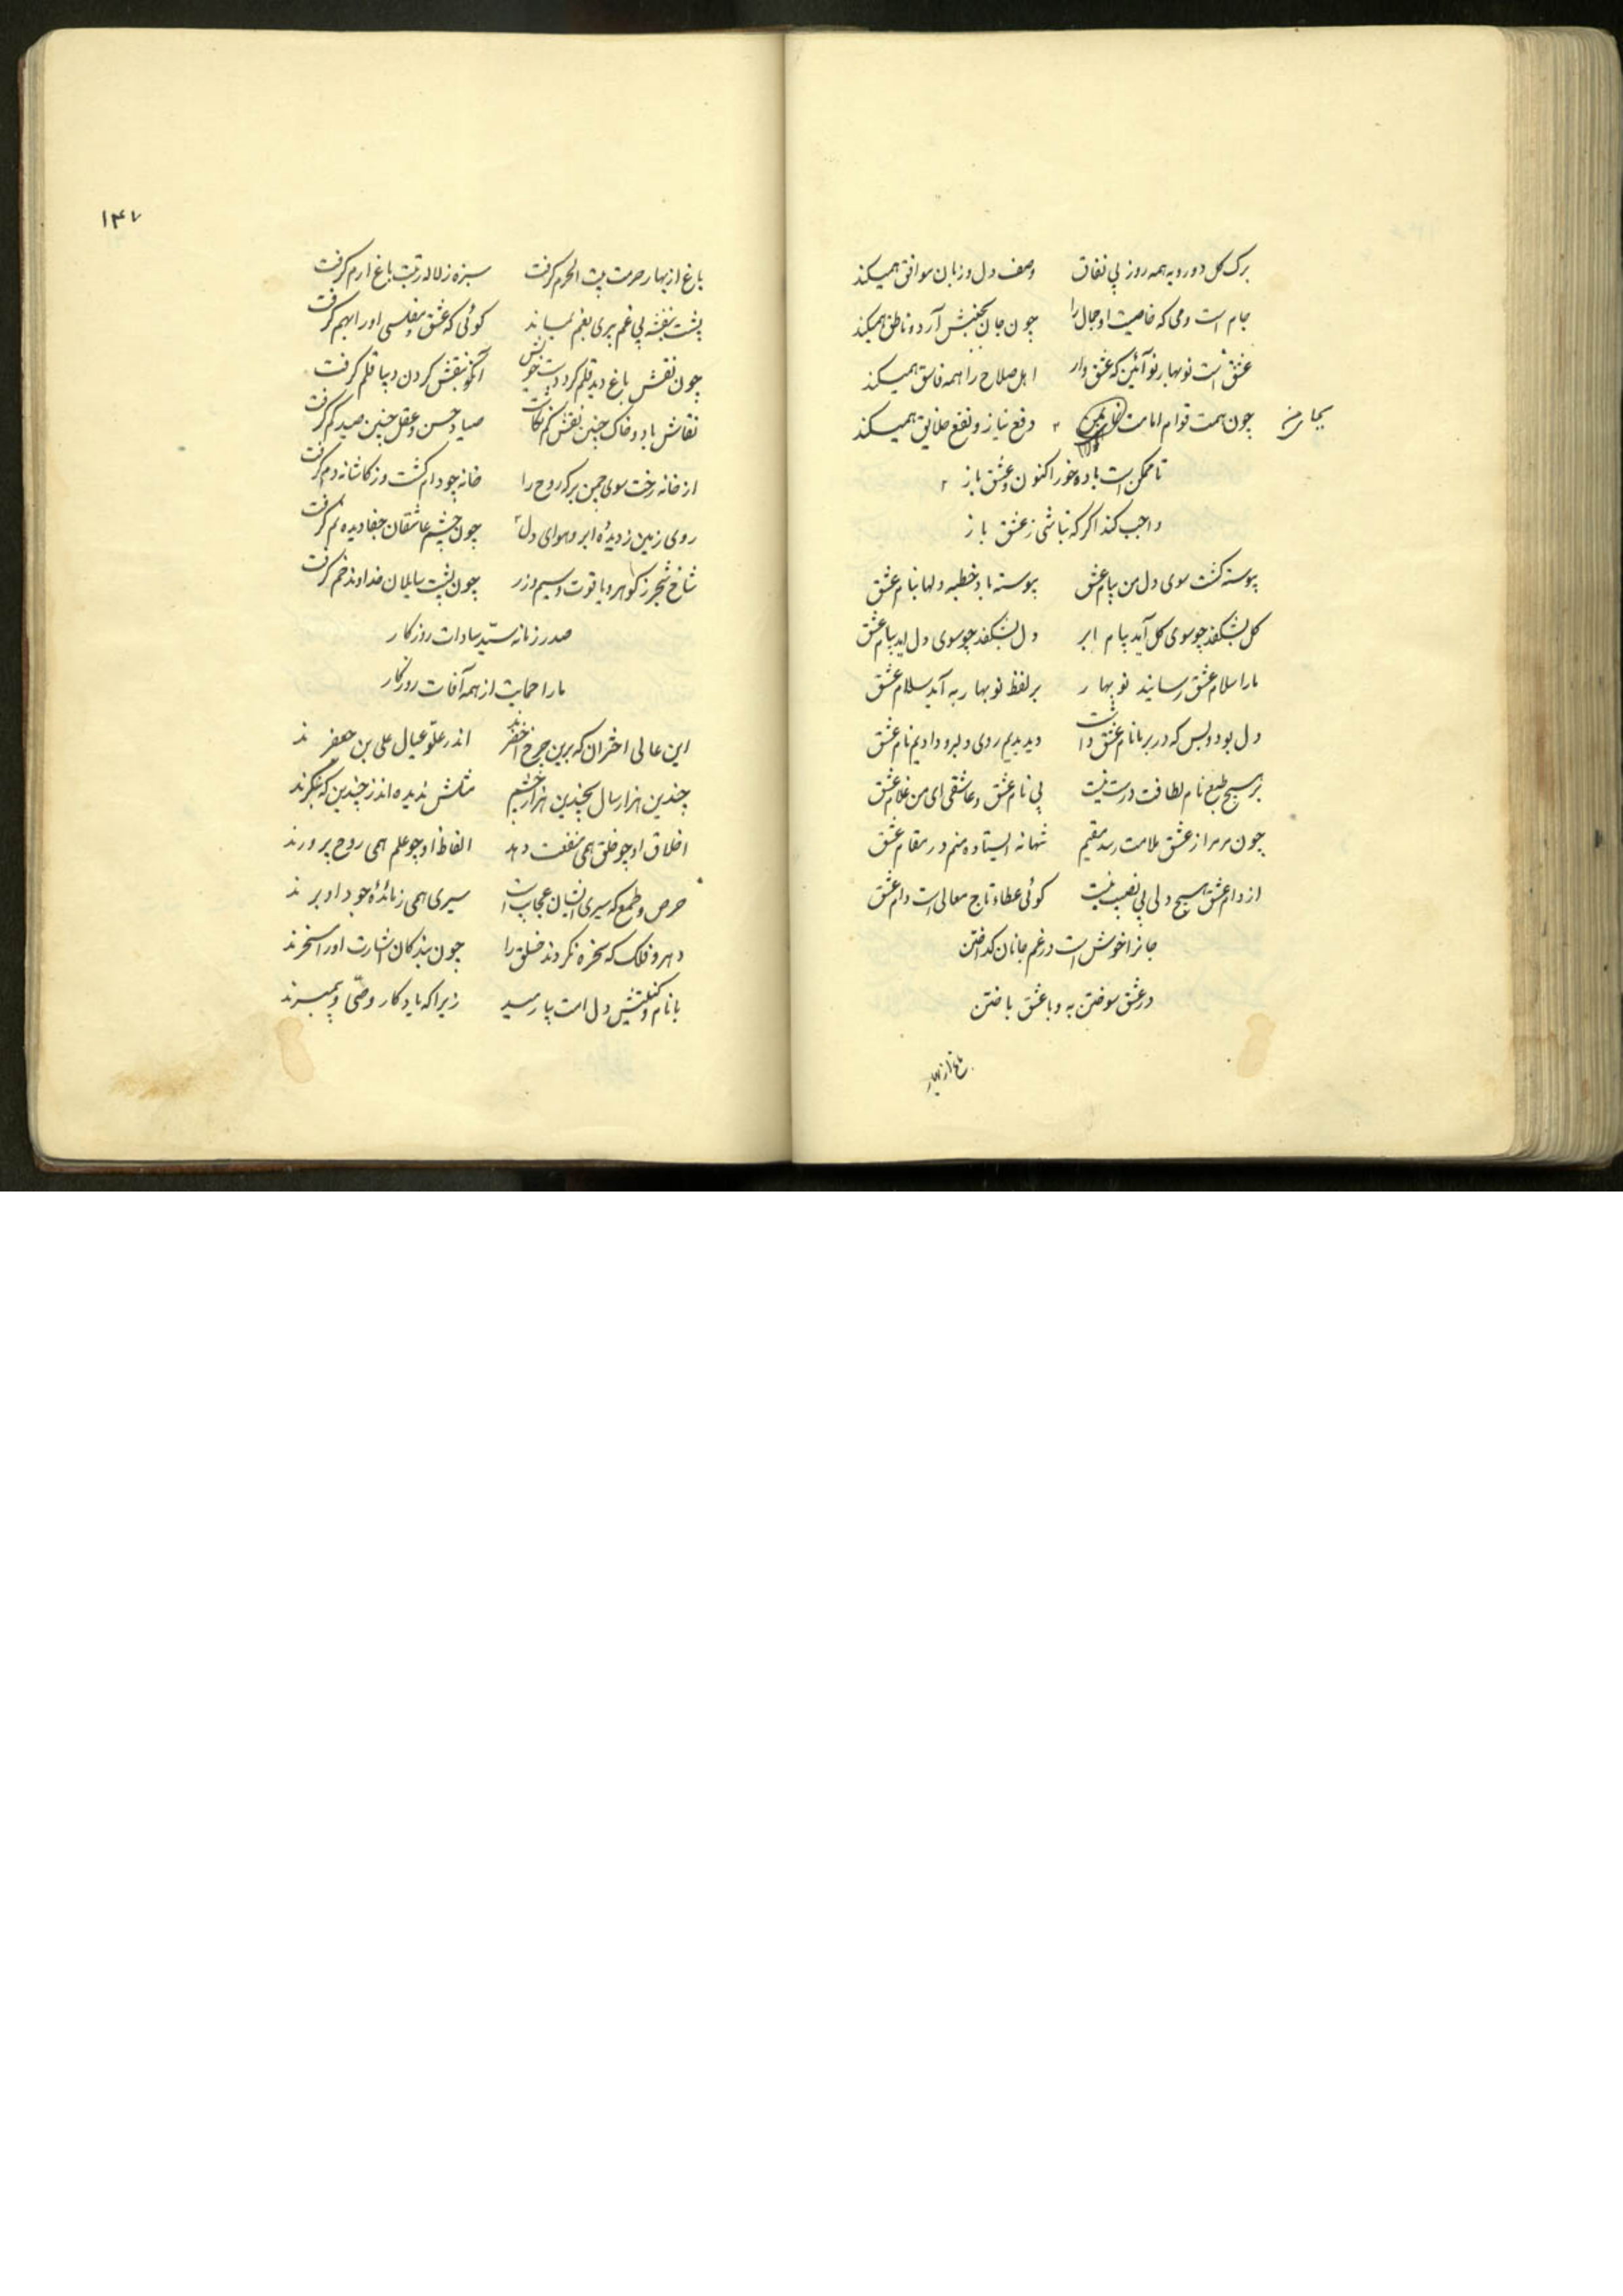 برک کل دورویه همه روز بی نفاق وصف دل و زبان موافق همیکند
جام است و می که خاصیت او جمال را چون جان بجنبش آرد و ناطق همیکند
عشق است نوبهار نو آئین که عشق وار اهل صلاح را همه فاسق همیکند
چون همت قوام امامت رفع نیاز و نفع خلایق همیکند
تا ممکن است باده خور اکنون و عشق باز
واجب کند اکر که نباشی ز عشق باز
پیوسته کشت سوی دل من پیام عشق پیوسته باد خطبه دلها بنام عشق
کل بشکفد چو سوی کل آید پیام ابر دل بشکفد چو سوی دل اید پیام عشق
مارا سلام عشق رسانید نوبهار بر لفظ نوبهار به آمد سلام عشق
دل بود و بس که در بر ما نام عشق داشت دیدیم روی دلبر و دادیم نام عشق
بر هیچ طبع نام لطافت درست نیست بی نام عشق و عاشقی ای من غلام عشق
چون مر مرا از عشق ملامت رسد مقیم شهانه ایستاده منم در مقام عشق
از دام عشق هیچ دلی بی نصیب نیست کوئی عطاء تاج معالی است دام عشق
جانرا خوش است در غم جانان کداختن
در عشق سوختن به و با عشق باختن
باغ از بهار
۱۴۷
باغ از بهار حرمت بیت الحرم کرفت سبزه ز لاله رتبت باغ ارم کرفت
پشت بنفشه بی غم پیری بخم بماند کوئی که عشق و مفلسی او را بهم کرفت
چون نقش باغ دید قلم کرد دست خویش آنکو بنقش کردن دیبا قلم کرفت
نقاش باد و خاک چنین نقش کم نکاشت صیاد حسن و عقل چنین صید کم کرفت
از خانه رخت سوی چمن بر که روح را خانه چو دام کشت و ز کاشانه دم کرفت
روی زمین ز دیده ابر و هوای دل چون چشم عاشقان جفا دیده نم کرفت
شاخ شجر ز کوهر و یاقوت و سیم و زر چون پشت سایلان خداوند خم کرفت
صدر زمانه سید سادات روزکار
مارا حمایت از همه آفات روزکار
این عالی اختران که برین چرخ اخضرند اندر علو عیال علی بن جعفرند
چندین هزار سال بچندین هزار چشم مثلش ندیده اند ز چندین که بنکرند
اخلاق او چو خلق همی منفعت دهد الفاظ او چو علم همی روح پرورند
حرص و طمع که سیری ایشان عجایب است سیری همی ز مائدهٔ جود او برند
دهر و فلک که سخره نکردند خلق را چون بندکان اشارت او را مسخرند
با نام و کنیتش دل امت بیارمید زیرا که یادکار وصی و پیمبرند